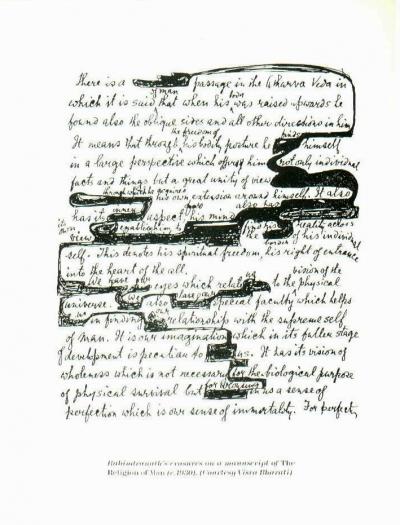 There is a passage in the Atharva Veda in
of man body
which it is said that when his was raised upwards he
found also the oblique sides and all other directions in him
the freedom of finds
It means that through his bodily posture he himself
in a large perspective which offers him not only individual
facts and things but a great unity of view
through which he acquires
his own extension around himself. It also
also has
has its inner aspect his mind
its own
view reality across
the of his individual
self. This denotes his spiritual freedom, his right of entrance
into the heart of the all.
We have our us vision of the
eyes which relate to the physical
universe. We also have our special faculty which helps
us in finding our relationship with the supreme self
of man. It is our imagination which in its fuller stage
of development is peculiar to us. It has its vision of
wholeness which is not necessary for the biological purpose
of physical survival but for arousing in us a sense of
perfection which is our sense of immortality. For perfect
Rabindranath's erasures on a manuscript of The
Religion of Man (c.1930). (Courtesy Visva Bharati)